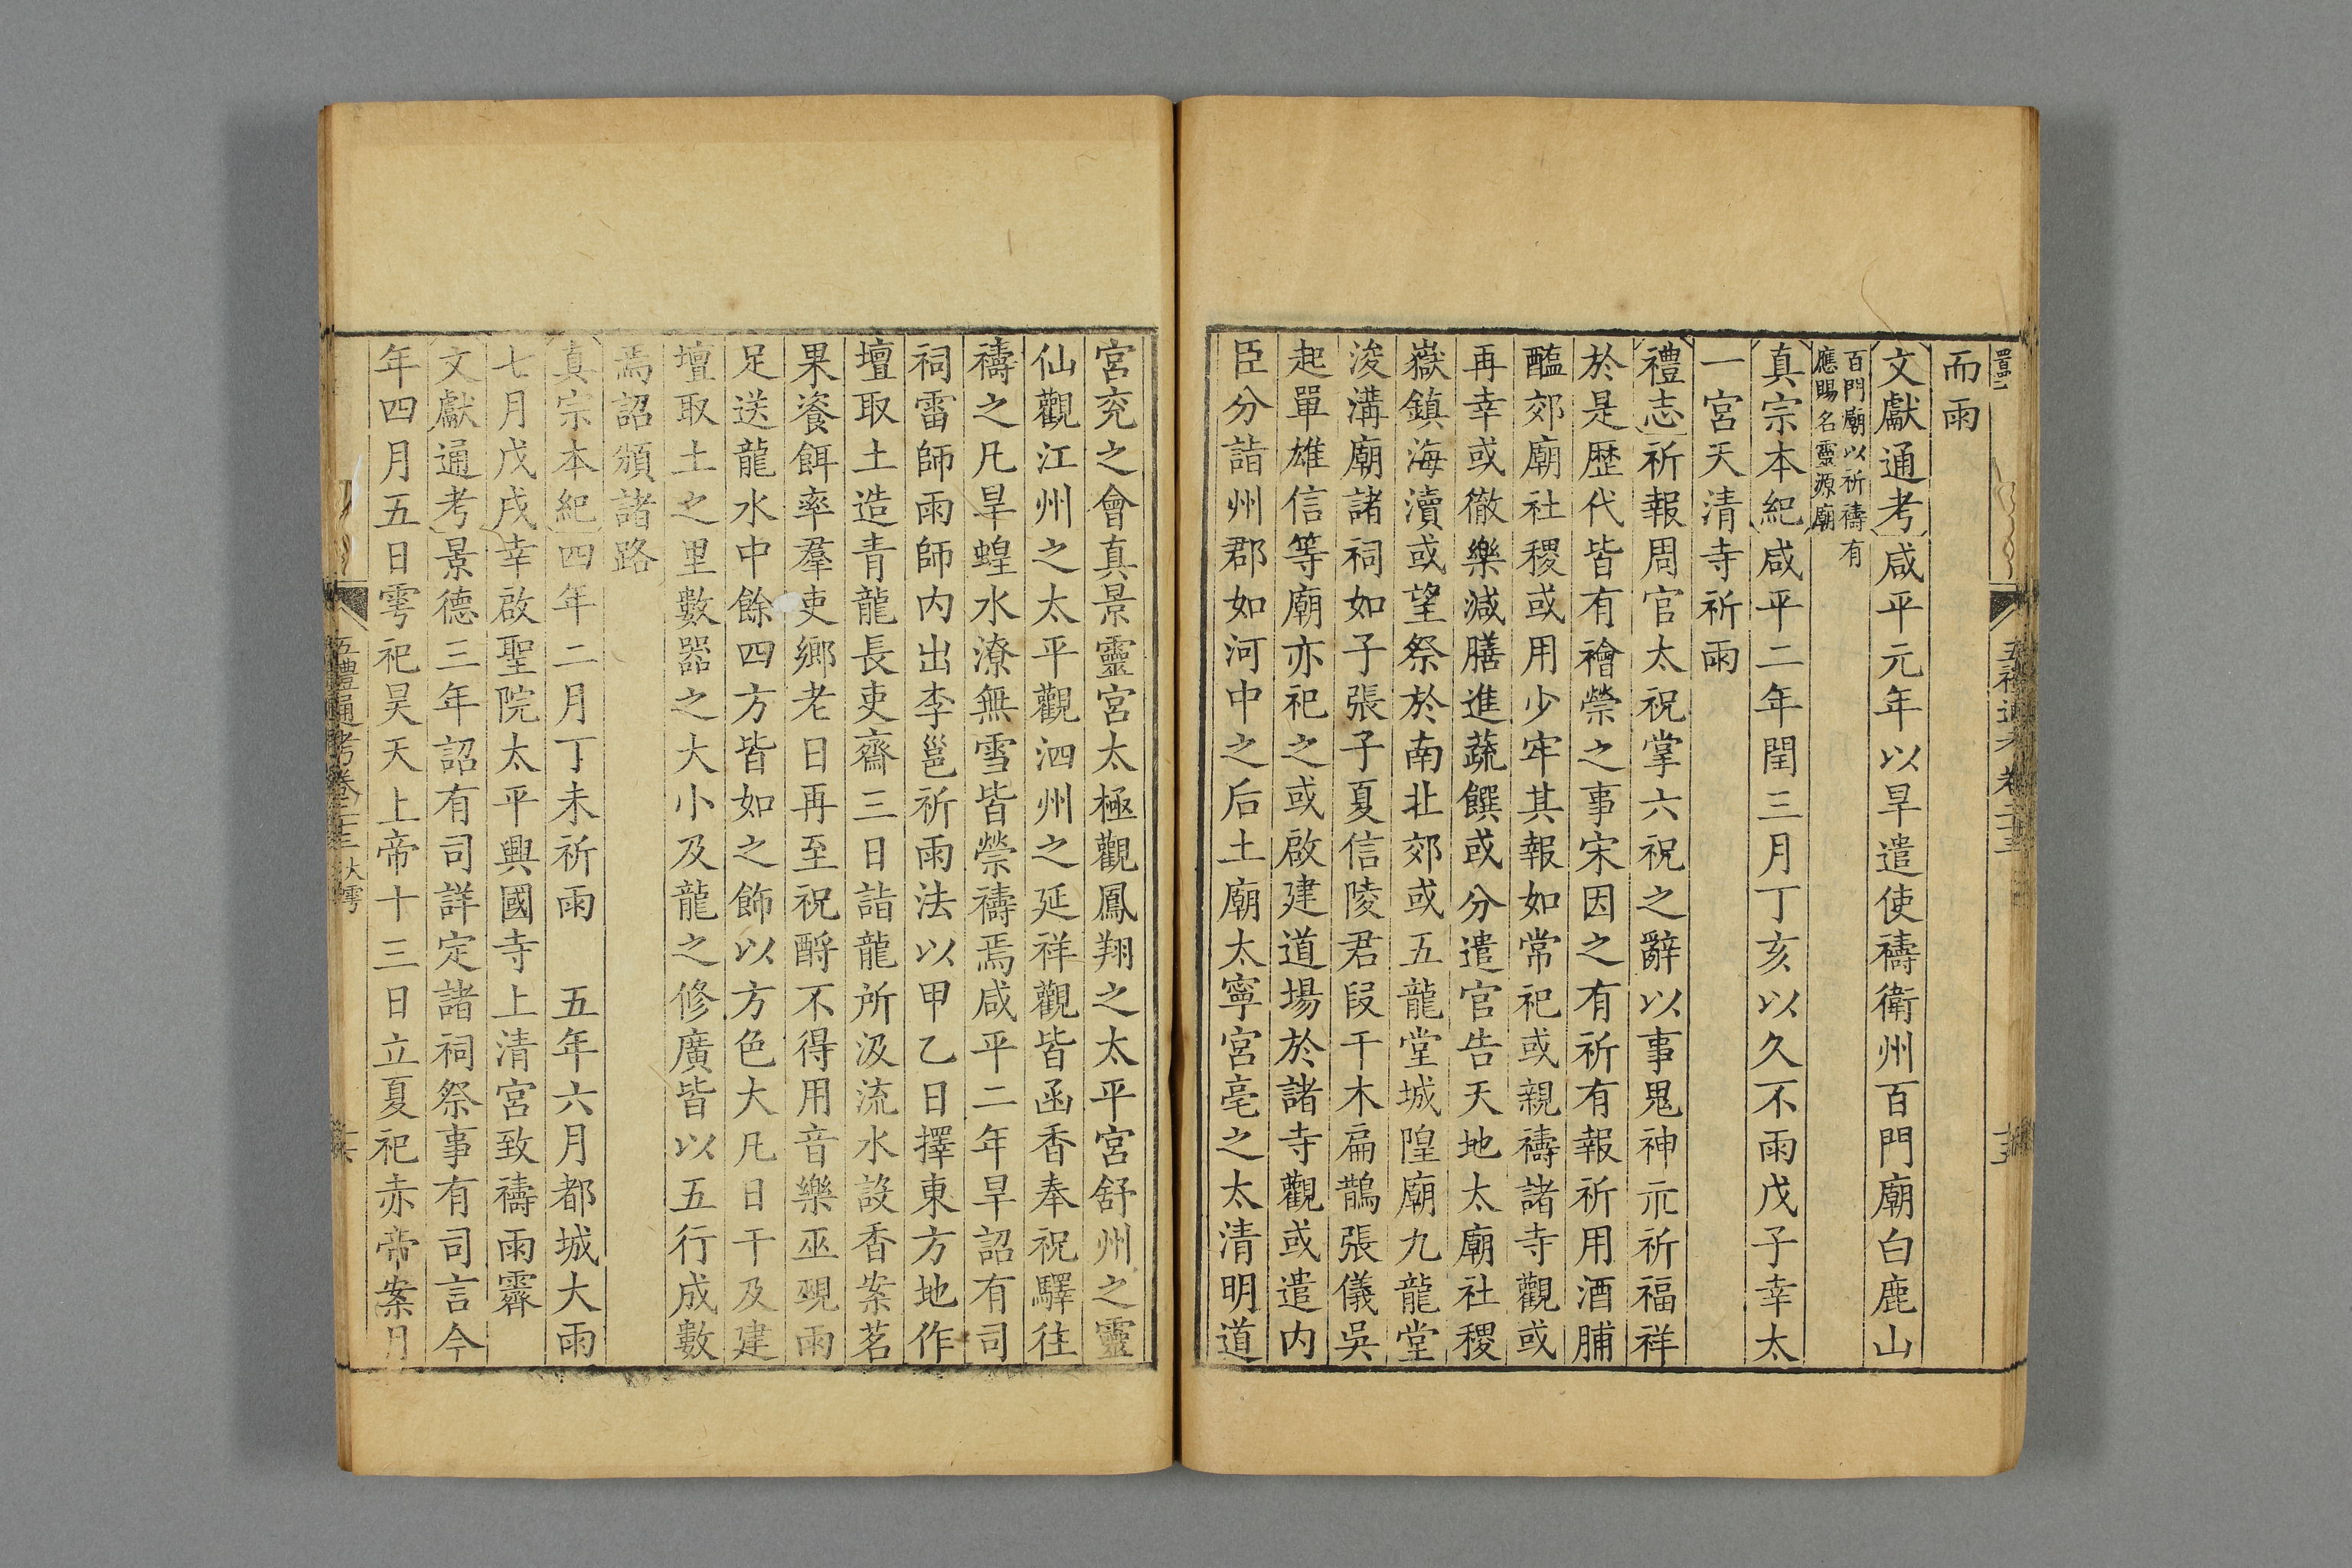 而雨
文獻通考咸平元年以旱遣使禱衛州百門廟白鹿山
百門廟以祈禱有
應賜名靈源廟
真宗本紀咸平二年閏三月丁亥以久不雨戊子幸太
一宮天清寺祈雨
禮志祈報周官太祝掌六祝之辭以事鬼神示祈福祥
於是歷代皆有禬禜之事宋因之有祈有報祈用酒脯
醢郊廟社稷或用少牢其報如常祀或親禱諸寺觀或
再幸或徹樂減膳進蔬饌或分遣官告天地太廟社稷
嶽鎮海瀆或望祭於南北郊或五龍堂城隍廟九龍堂
浚溝廟諸祠如子張子夏信陵君段干木扁鵲張儀吳
起單雄信等廟亦祀之或啟建道場於諸寺觀或遣内
臣分詣州郡如河中之后土廟太寧宮亳之太清明道
宮兖之會真景靈宮太極觀鳳翔之太平宮舒州之靈
仙觀江州之太平觀泗州之延祥觀皆函香奉祝驛往
禱之凡旱蝗水潦無雪皆禜禱焉咸平二年旱詔有司
祠雷師雨師内出李邕祈雨法以甲乙日擇東方地作
壇取土造青龍長吏齋三日詣龍所汲流水設香案茗
果餈餌率羣吏鄉老日再至祝酹不得用音樂巫覡雨
足送龍水中餘四方皆如之飾以方色大凡日干及建
壇取土之里數器之大小及龍之修廣皆以五行成數
焉詔頒諸路
真宗本紀四年二月丁未祈雨　五年六月都城大雨
七月戊戌幸啟聖院太平興國寺上清宮致禱雨霽
文獻通考景德三年詔有司詳定諸祠祭事有司言今
年四月五日雩祀昊天上帝十三日立夏祀赤帝案月
五禮通考卷二十二 大雩